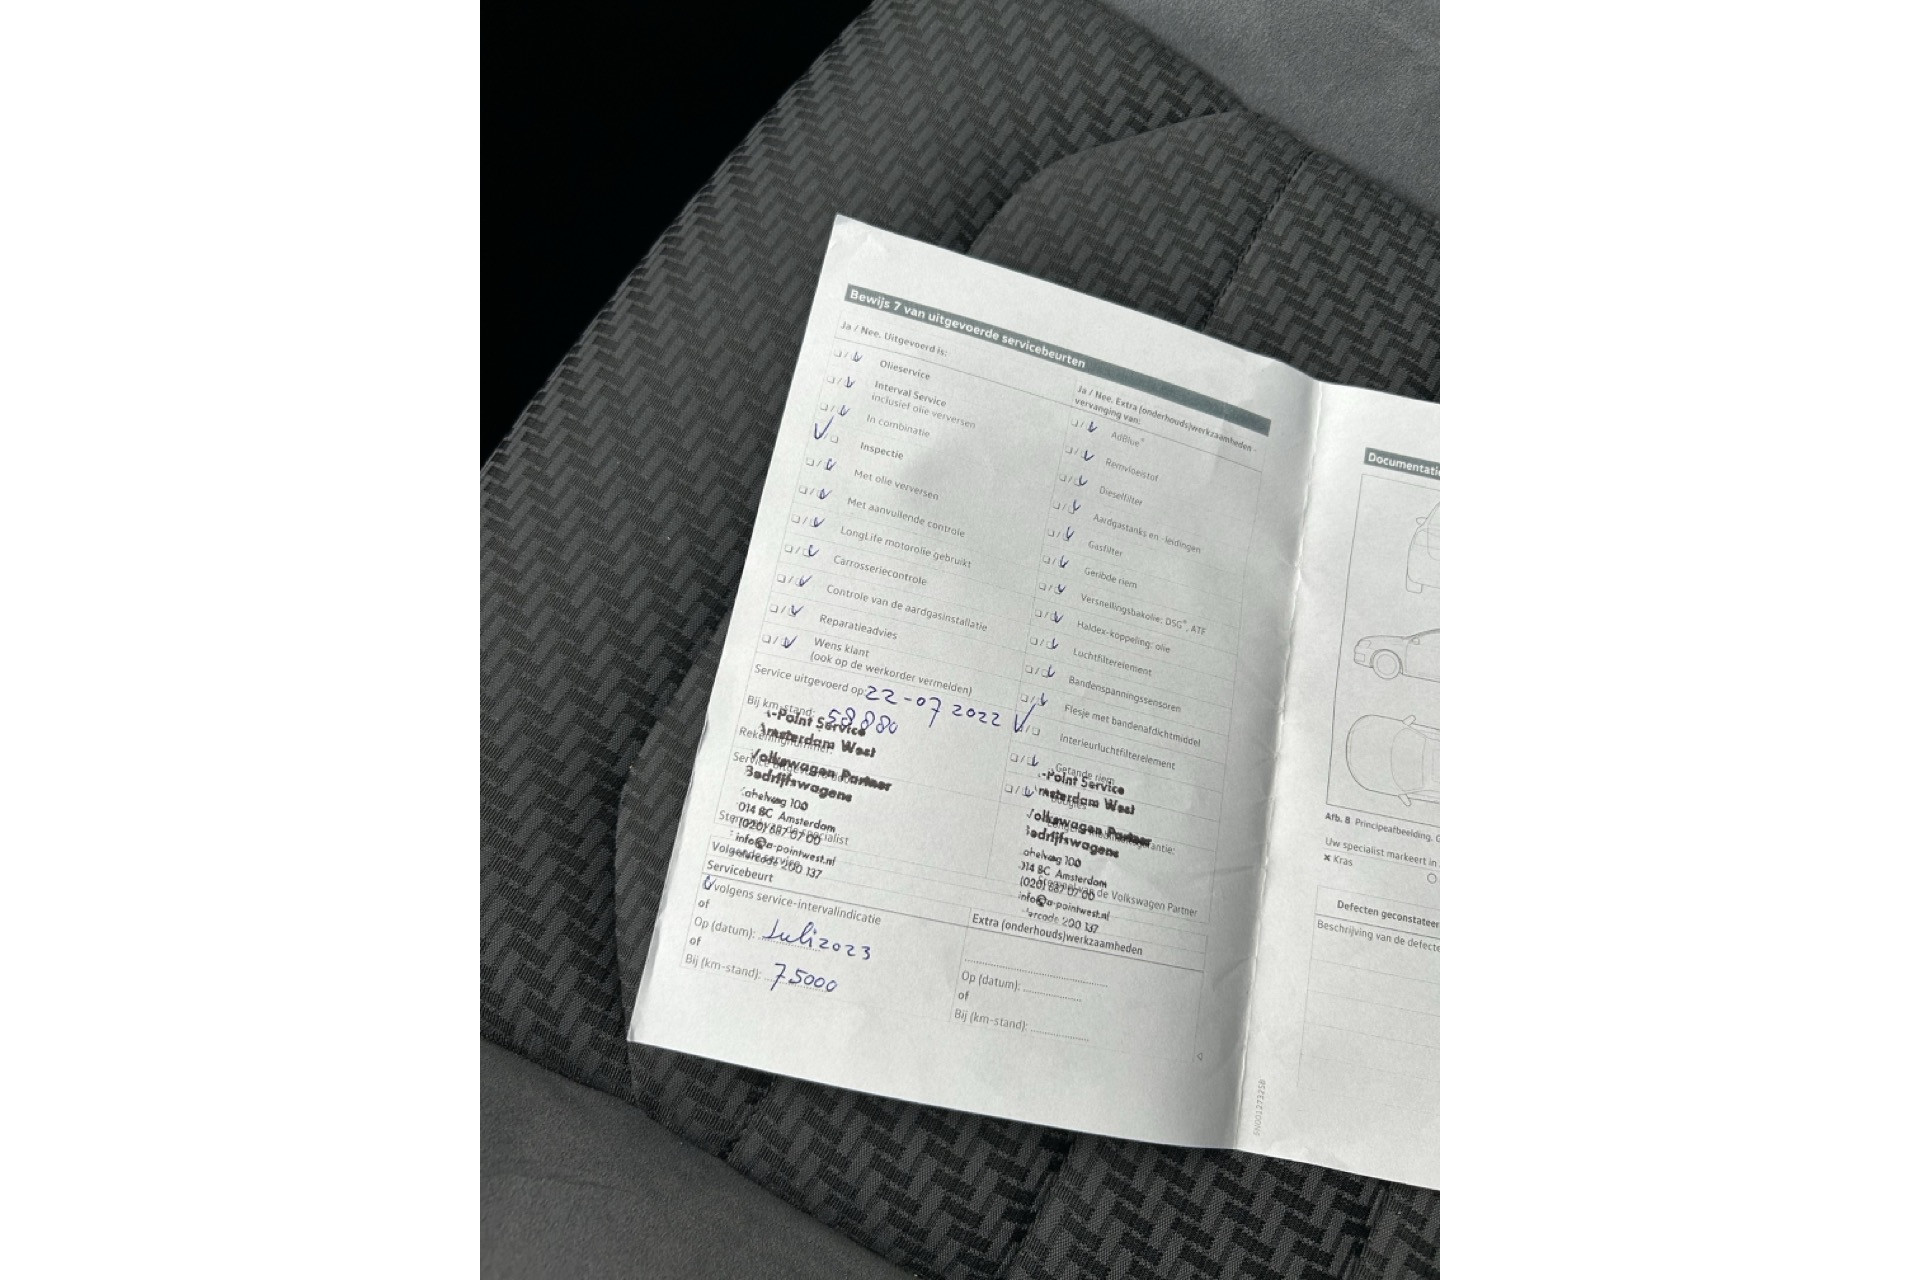 Bewijs 7 van uitgevoerde servicebeurten
Ja / Nee. Uitgevoerd is:
Olieservice
Interval Service
inclusief olie verversen
In combinatie
Inspectie
Met olie verversen
Met aanvullende controle
LongLife motorolie gebruikt
Carrosseriecontrole
Controle van de aardgasinstallatie
Reparatieadvies
Wens klant
(ook op de werkorder vermelden)
Service uitgevoerd op: 22-07 2022
Bij km-stand: 58880
Rekeningnummer:
-Point Service
Amsterdam West
Volkswagen Partner
Bedrijfswagens
014 BC Amsterdam
(020) 687 07 00
info@a-pointwest.nl
200 137
Volgende service
Servicebeurt
volgens service-intervalindicatie
of
Op (datum): Juli 2023
of
Bij (km-stand): 75000
Ja / Nee. Extra (onderhouds)werkzaamheden -
vervanging van:
AdBlue®
Remvloeistof
Dieselfilter
Aardgastanks en -leidingen
Gasfilter
Geribde riem
Versnellingsbakolie: DSG®, ATF
Haldex-koppeling: olie
Luchtfilterelement
Bandenspanningssensoren
Flesje met bandenafdichtmiddel
Interieurluchtfilterelement
Getande riem
-Point Service
msterdam West
Volkswagen Partner
Bedrijfswagens
ahelweg 100
014 BC Amsterdam
(020) 687 07 00
de Volkswagen Partner
info@a-pointwest.nl
ercode 290 137
Extra (onderhouds)werkzaamheden
Op (datum):
of
Bij (km-stand):
Documentati
Afb. 8 Principeafbeelding.
Uw specialist markeert in
× Kras
Defecten geconstateer
Beschrijving van de defecte